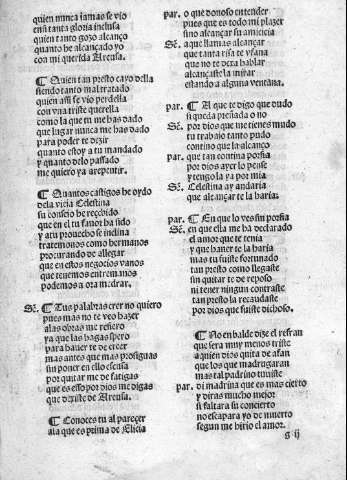 quien nunca jamas se vio
en tanta gloria inclusa
quien tanto gozo alcanço
quanto he alcançado yo
con mi querida Areusa.
¶ Quien tan presto cayo della
siendo tanto mal tratado
quien assi se vio perdella
con vna triste querella
como la que tu me has dado
que lugar nunca me has dado
para poder te dezir
quanto estoy a tu mandado
y quanto delo passado
me quiero ya arrepentir.
¶ Quantos castigos he oydo
dela vieja Celestina
su consejo he recebido
que en el tu amor ha sido
y atu prouecho se inclina
tratemonos como hermanos
procurando de allegar
que en estos negocios vanos
que tenemos entre manos
podemos a ora medrar.
Sē. ¶ Tus palabras creer no quiero
pues mas no te veo hazer
alas obras me refiero
ya que las hagas spero
para hauer te de creer
mas antes que mas prosigas
sin poner en ello escusa
por quitar me de fatigas
que es esso por dios me digas
que dexiste de Areusa.
¶ Conoces tu al parecer
ala que es prima de Elicia
par. o que donoso entender
pues que es todo mi plazer
sino alcançar su amicicia
Sē. a que llamas alcançar
que tanta risa te vsana
que no te dexa hablar
alcançaste la mirar
estando a alguna ventana.
par. ¶ Al que te digo que dudo
si queda preñada o no
Sē. por dios que me tienes mudo
tu trabajo tanto pudo
contino que la alcanço
par. que tan contina porfia
por dios ayer lo pense
y tengo la ya por mia
Sē. Celestina ay andaria
que alcançar te la haria.
par. ¶ En que lo ves sin porfia
Sē. en que ella me ha declarado
el amor que te tenia
y que hauer te la haria
mas tu fuiste fortunado
tan presto como llegaste
sin quitar te de reposo
ni tener ningun contraste
tan presto la recaudaste
por dios que fuiste dichoso.
¶ No en balde dize el refran
que sera muy menos triste
a quien dios quita de afan
que los que madrugaran
mas tal padrino tuuiste
par. di madrina que es mas cierto
y diras mucho mejor
si faltara su concierto
no escapara yo de muerto
segun me hirio el amor.
g ij